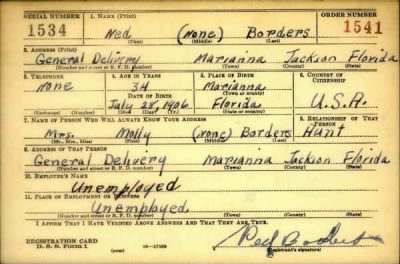 SERIAL NUMBER 1. NAME (Print) ORDER NUMBER
1534 Ned (none) Borders 1541
(First) (Middle) (Last)
2. ADDRESS (Print)
General Delivery Marianna Jackson Florida
(Number and street or R. F. D. number) (Town) (County) (State)
3. TELEPHONE 4. AGE IN YEARS 5. PLACE OF BIRTH 6. COUNTRY OF CITIZENSHIP
none 34 Marianna
DATE OF BIRTH (Town or county)
July 28, 1906 Florida U.S.A.
(Exchange) (Number) (Mo.) (Day) (Yr.) (State or country)
7. NAME OF PERSON WHO WILL ALWAYS KNOW YOUR ADDRESS 8. RELATIONSHIP OF THAT PERSON
Mrs. Molly (none) Borders Hunt
(Mr., Mrs., Miss) (First) (Middle) (Last)
9. ADDRESS OF THAT PERSON
General Delivery Marianna Jackson Florida
(Number and street or R. F. D. number) (Town) (County) (State)
10. EMPLOYER'S NAME
Unemployed
11. PLACE OF EMPLOYMENT OR BUSINESS
Unemployed
(Number and street or R. F. D. number) (Town) (County) (State)
I AFFIRM THAT I HAVE VERIFIED ABOVE ANSWERS AND THAT THEY ARE TRUE.
REGISTRATION CARD
D. S. S. Form 1 (over) (Registrant's signature)